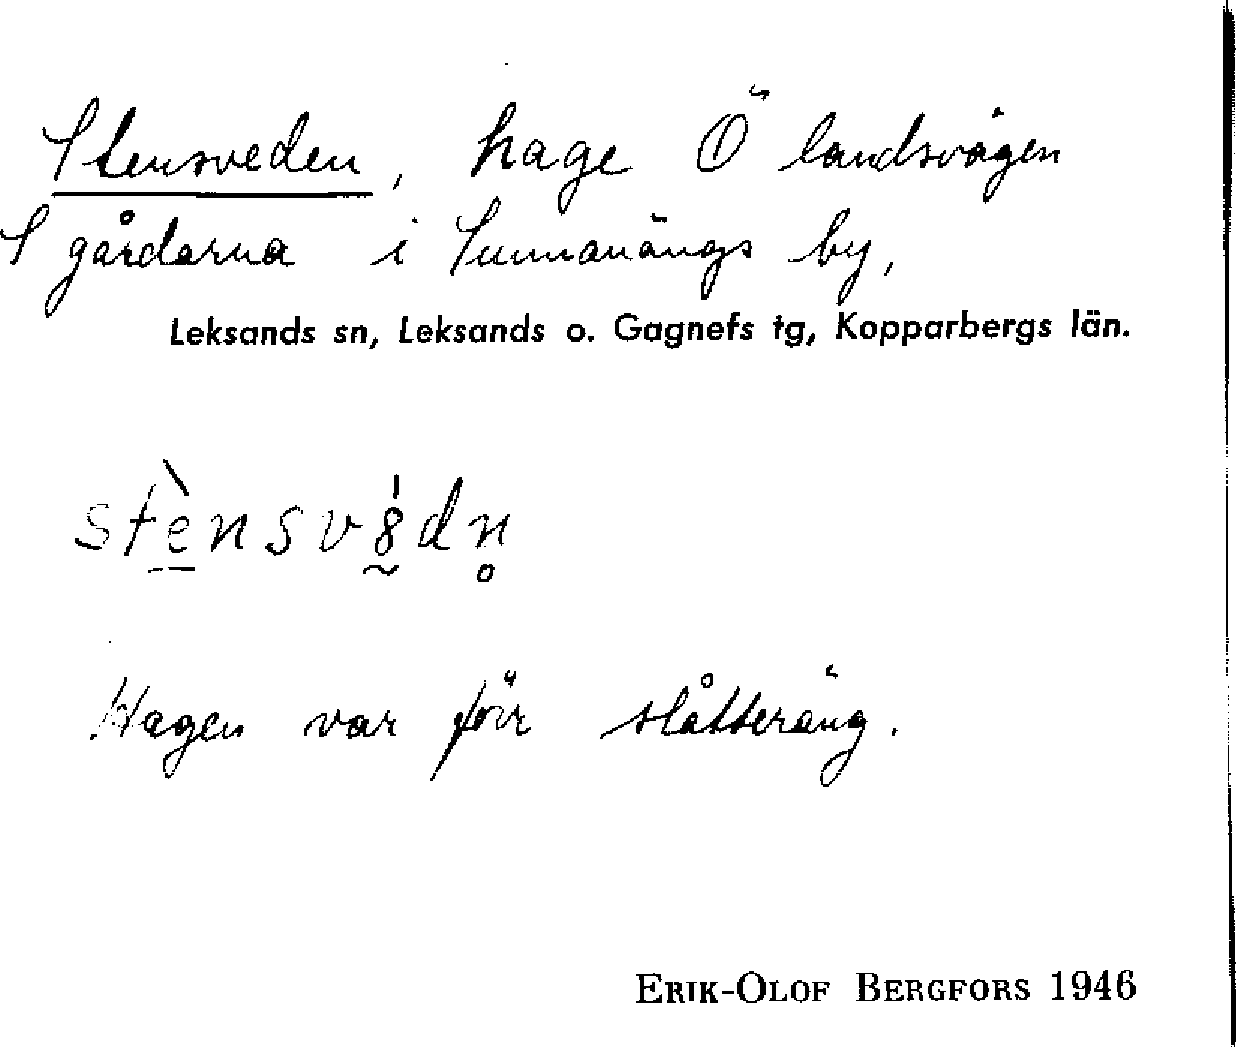 Stensveden, hage Ö landsvägen
S gårdarna i Sunnanängs by,
Leksands sn, Leksands o. Gagnefs tg, Kopparbergs län.
Hagen var förr slåtteräng.
ERIK-OLOF BERGFORS 1946